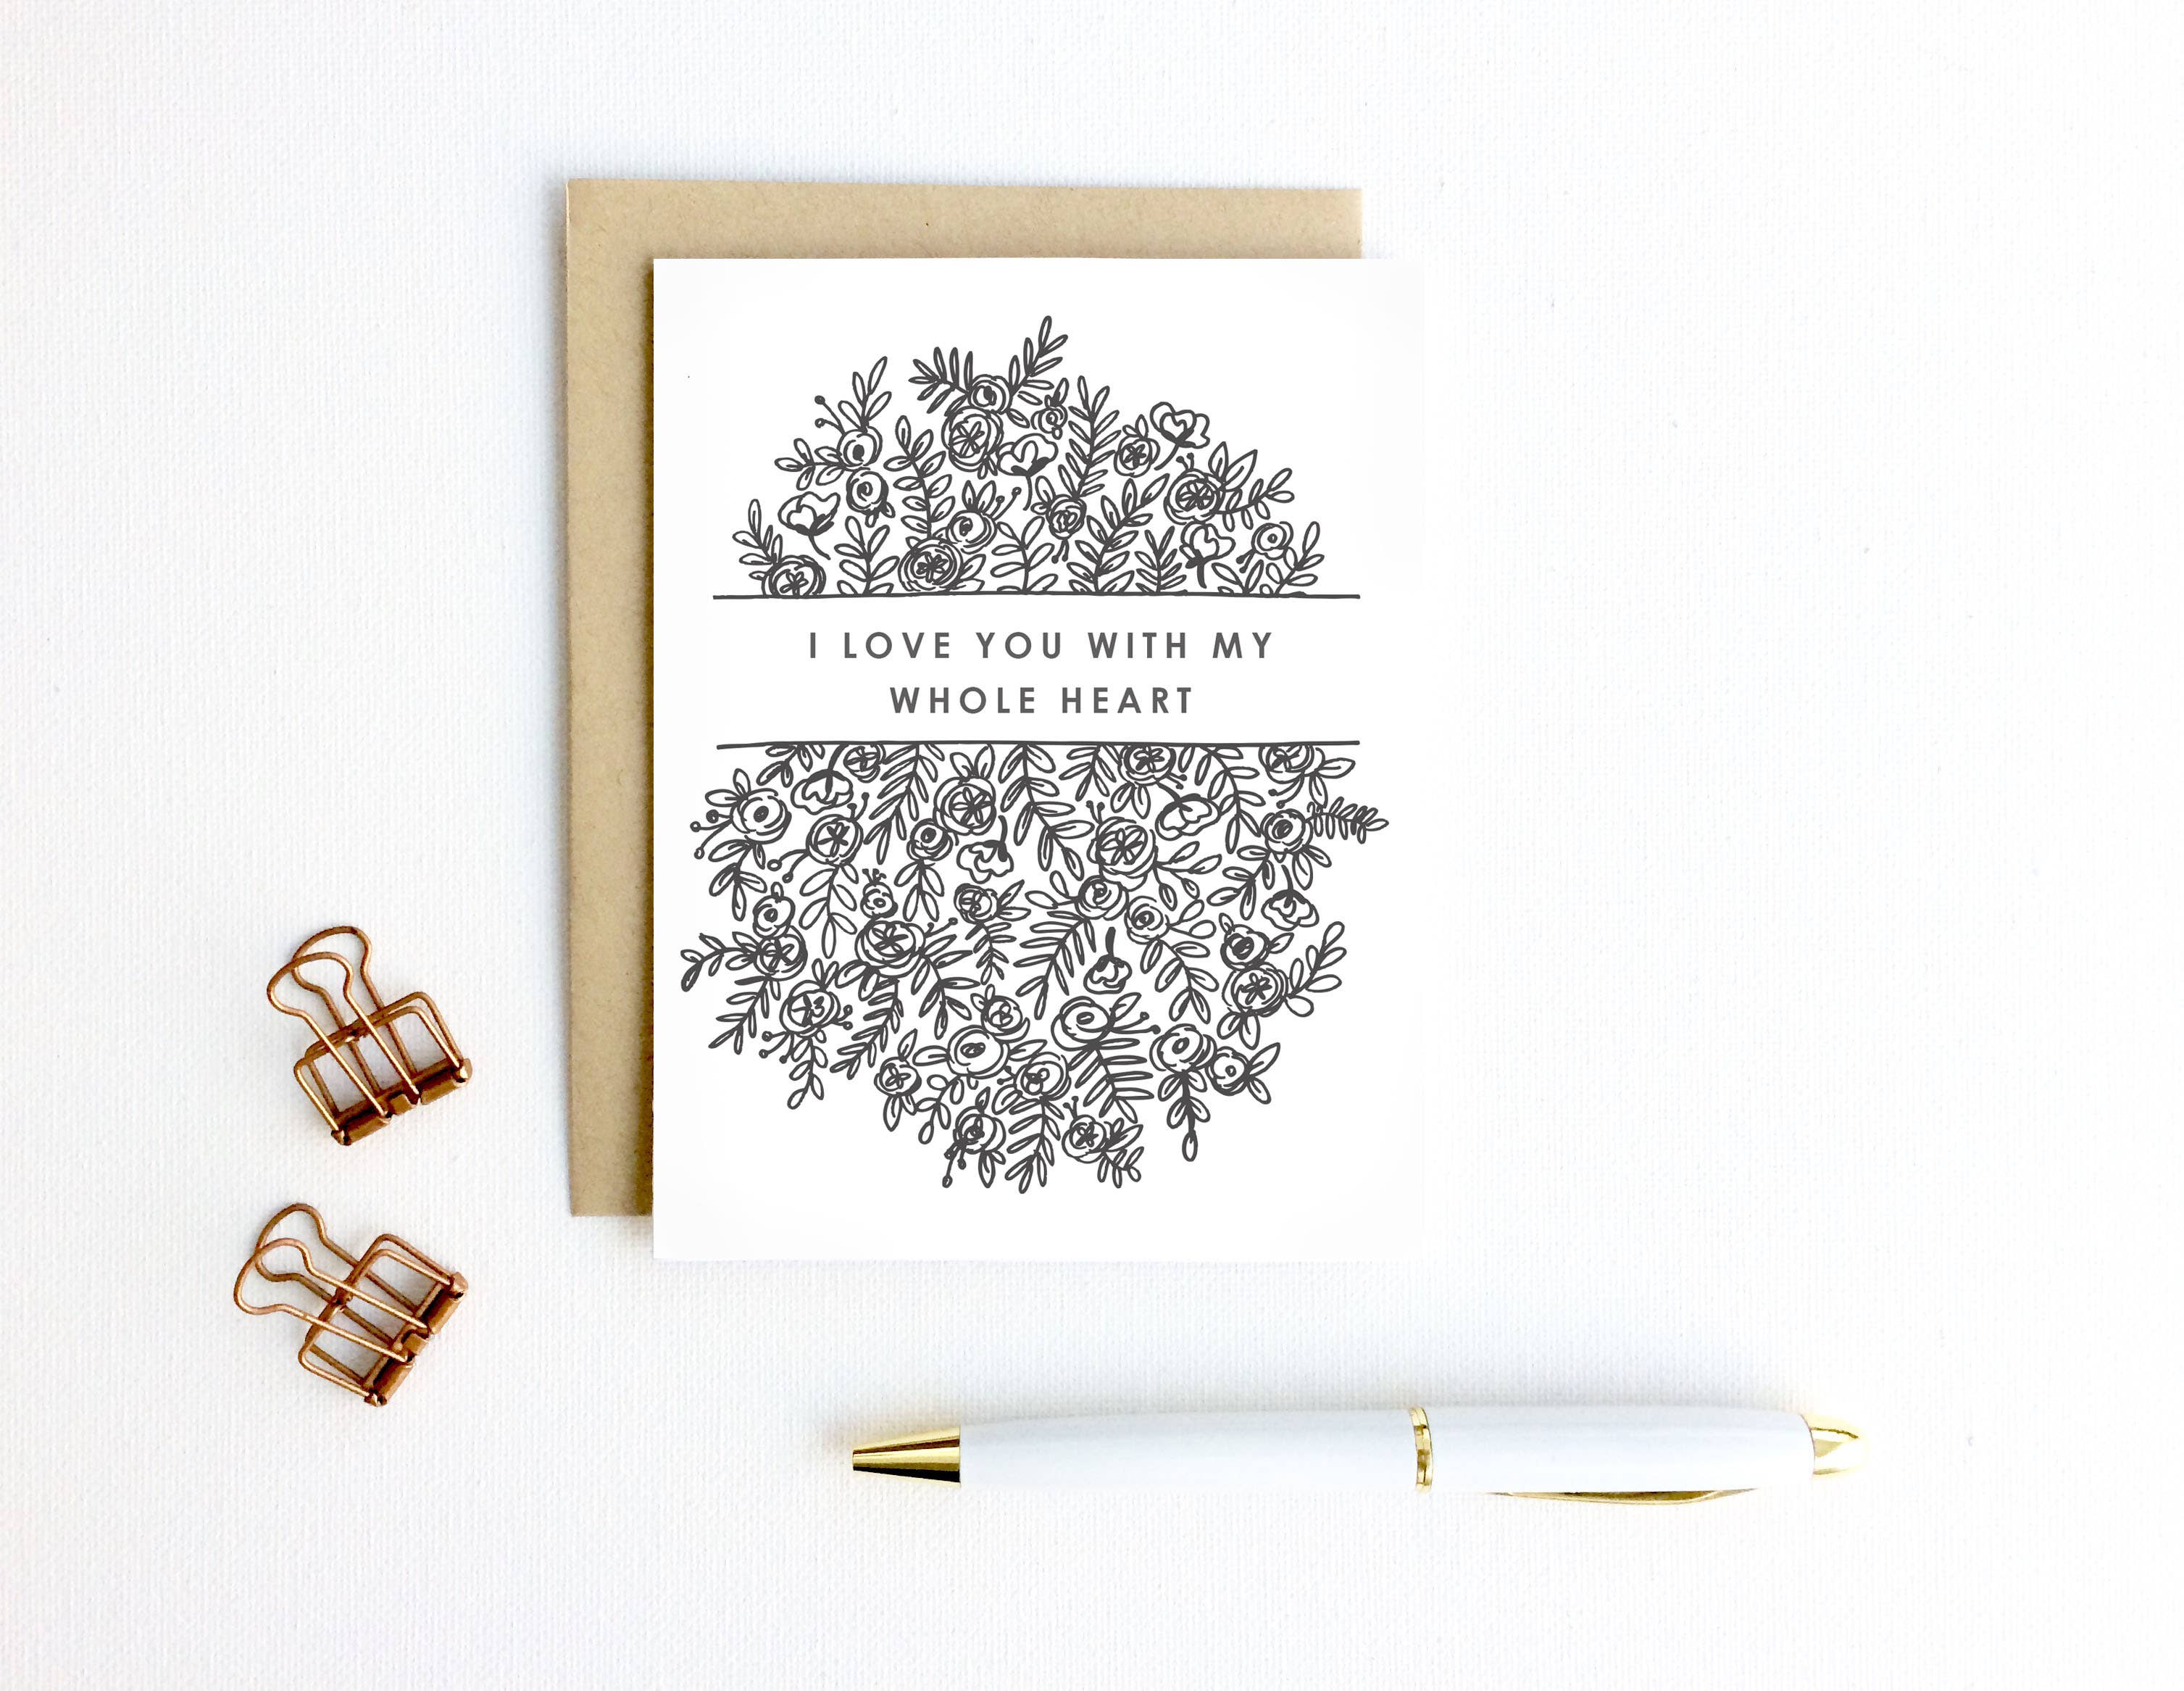 I LOVE YOU WITH MY
WHOLE HEART